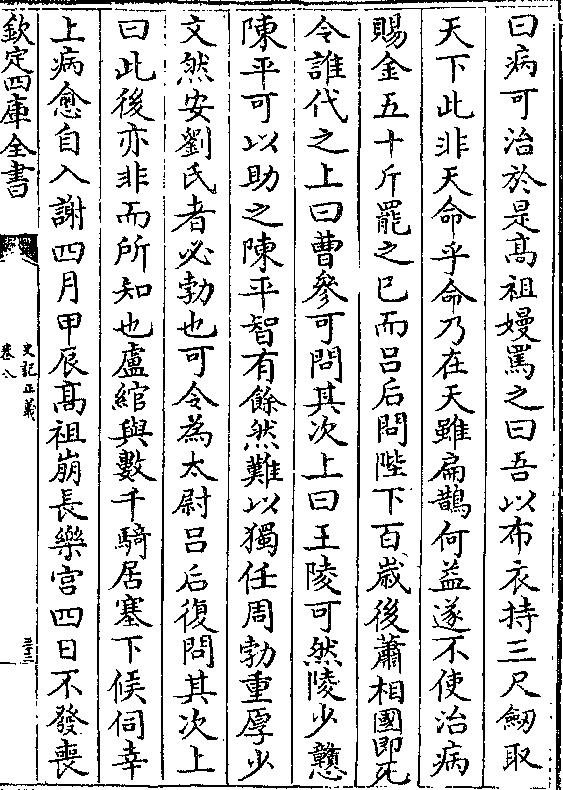 曰病可治於是髙祖嫚罵之曰吾以布衣持三尺劒取
天下此非天命乎命乃在天雖扁鵲何益遂不使治病
賜金五十斤罷之已而吕后問陛下百嵗後蕭相國即死
令誰代之上曰曹參可問其次上曰王陵可然陵少戇
陳平可以助之陳平智有餘然難以獨任周勃重厚少
文然安劉氏者必勃也可令為太尉吕后復問其次上
曰此後亦非而所知也盧綰與數千騎居塞下候伺幸
上病愈自入謝四月甲辰髙祖崩長樂宫四日不發喪
欽定四庫全書
史記正義
卷八
三十三